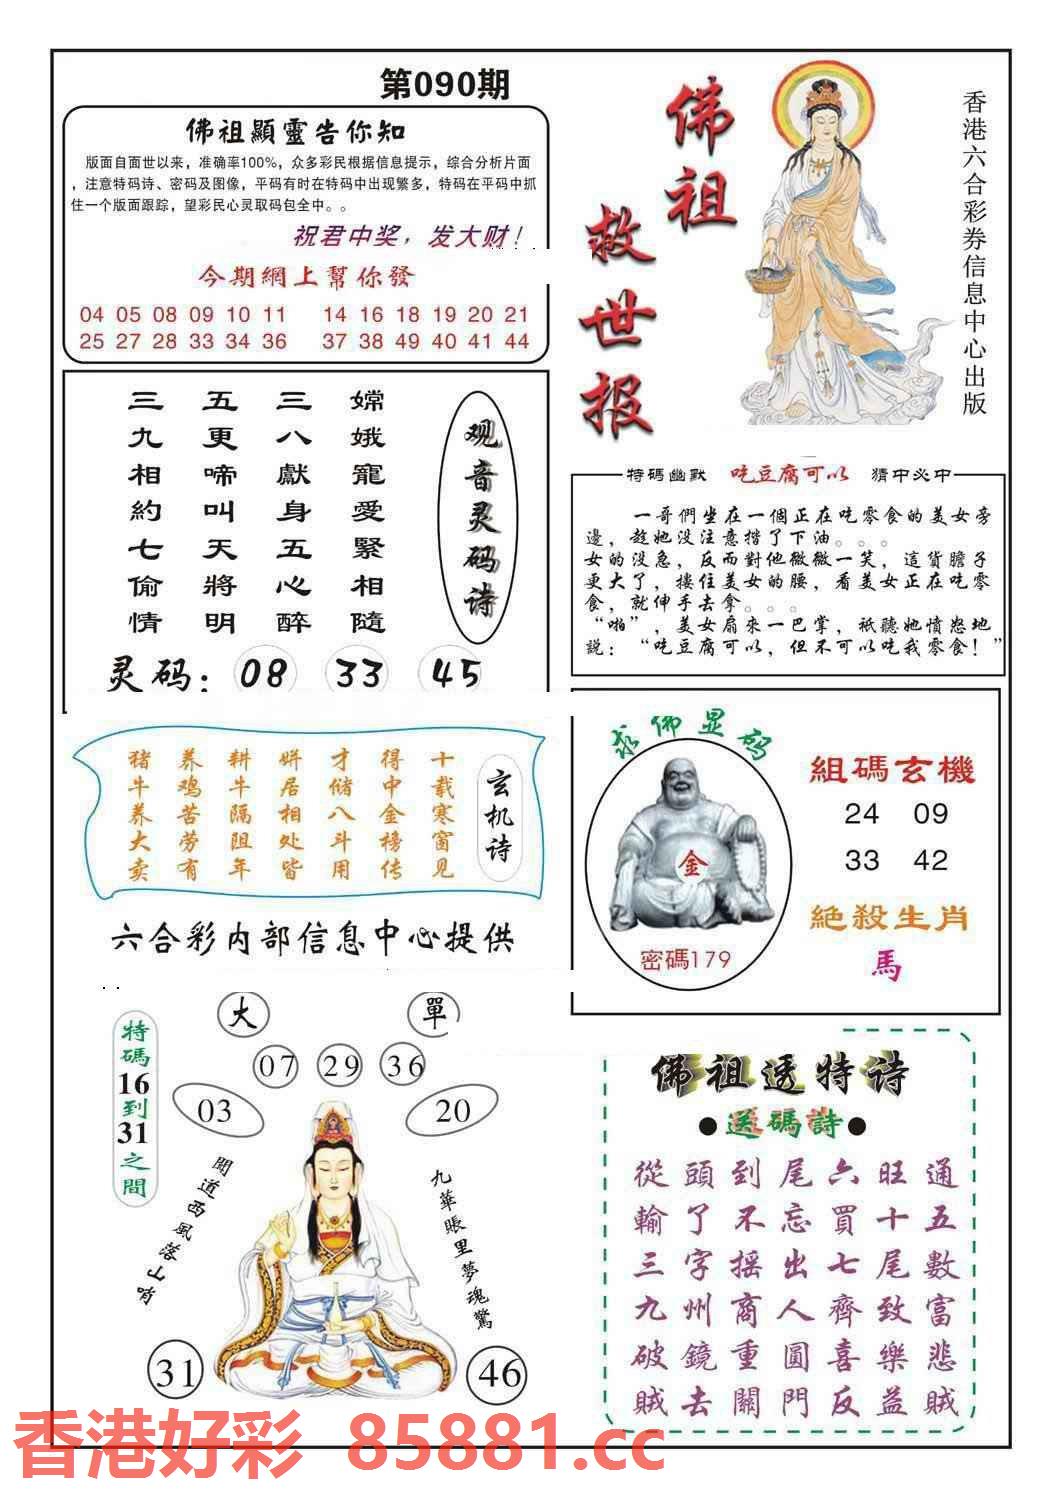 第090期
佛祖顯靈告你知
版面自面世以来，准确率100%，众多彩民根据信息提示，综合分析片面
，注意特码诗、密码及图像，平码有时在特码中出现繁多，特码在平码中抓
住一个版面跟踪，望彩民心灵取码包全中。。
祝君中奖，发大财！
今期網上幫你發
04 05 08 09 10 11 14 16 18 19 20 21
25 27 28 33 34 36 37 38 49 40 41 44
佛祖
救世报
香港六合彩券信息中心出版
观音灵码诗
嫦娥寵愛緊相隨
三八獻身五心醉
五更啼叫天將明
三九相約七偷情
灵码：08 33 45
特碼幽默 吃豆腐可以 猜中必中
一哥們坐在一個正在吃零食的美女旁
邊，趁她没注意揩了下油。。。
女的没急，反而對他微微一笑，這貨膽子
更大了，摟住美女的腰，看美女正在吃零
食，就伸手去拿。。。
“啪”，美女扇來一巴掌，祇聽她憤怒地
説：“吃豆腐可以，但不可以吃我零食！”
玄机诗
十载寒窗见
得中金榜传
才储八斗用
姘居相处皆
耕牛隔阻年
养鸡苦劳有
猪牛养大卖
六合彩内部信息中心提供
求佛显码
金
密碼179
組碼玄機
24 09
33 42
絕殺生肖
馬
大 單
07 29 36
03 20
特碼16到31之間
聞道西風落山哨
九華賬里夢魂驚
31 46
佛祖透特诗
●送碼詩●
從頭到尾六旺通
輸了不忘買十五
三字摇出七尾數
九州商人齊致富
破鏡重圓喜樂悲
賊去關門反益賊
香港好彩 85881.cc